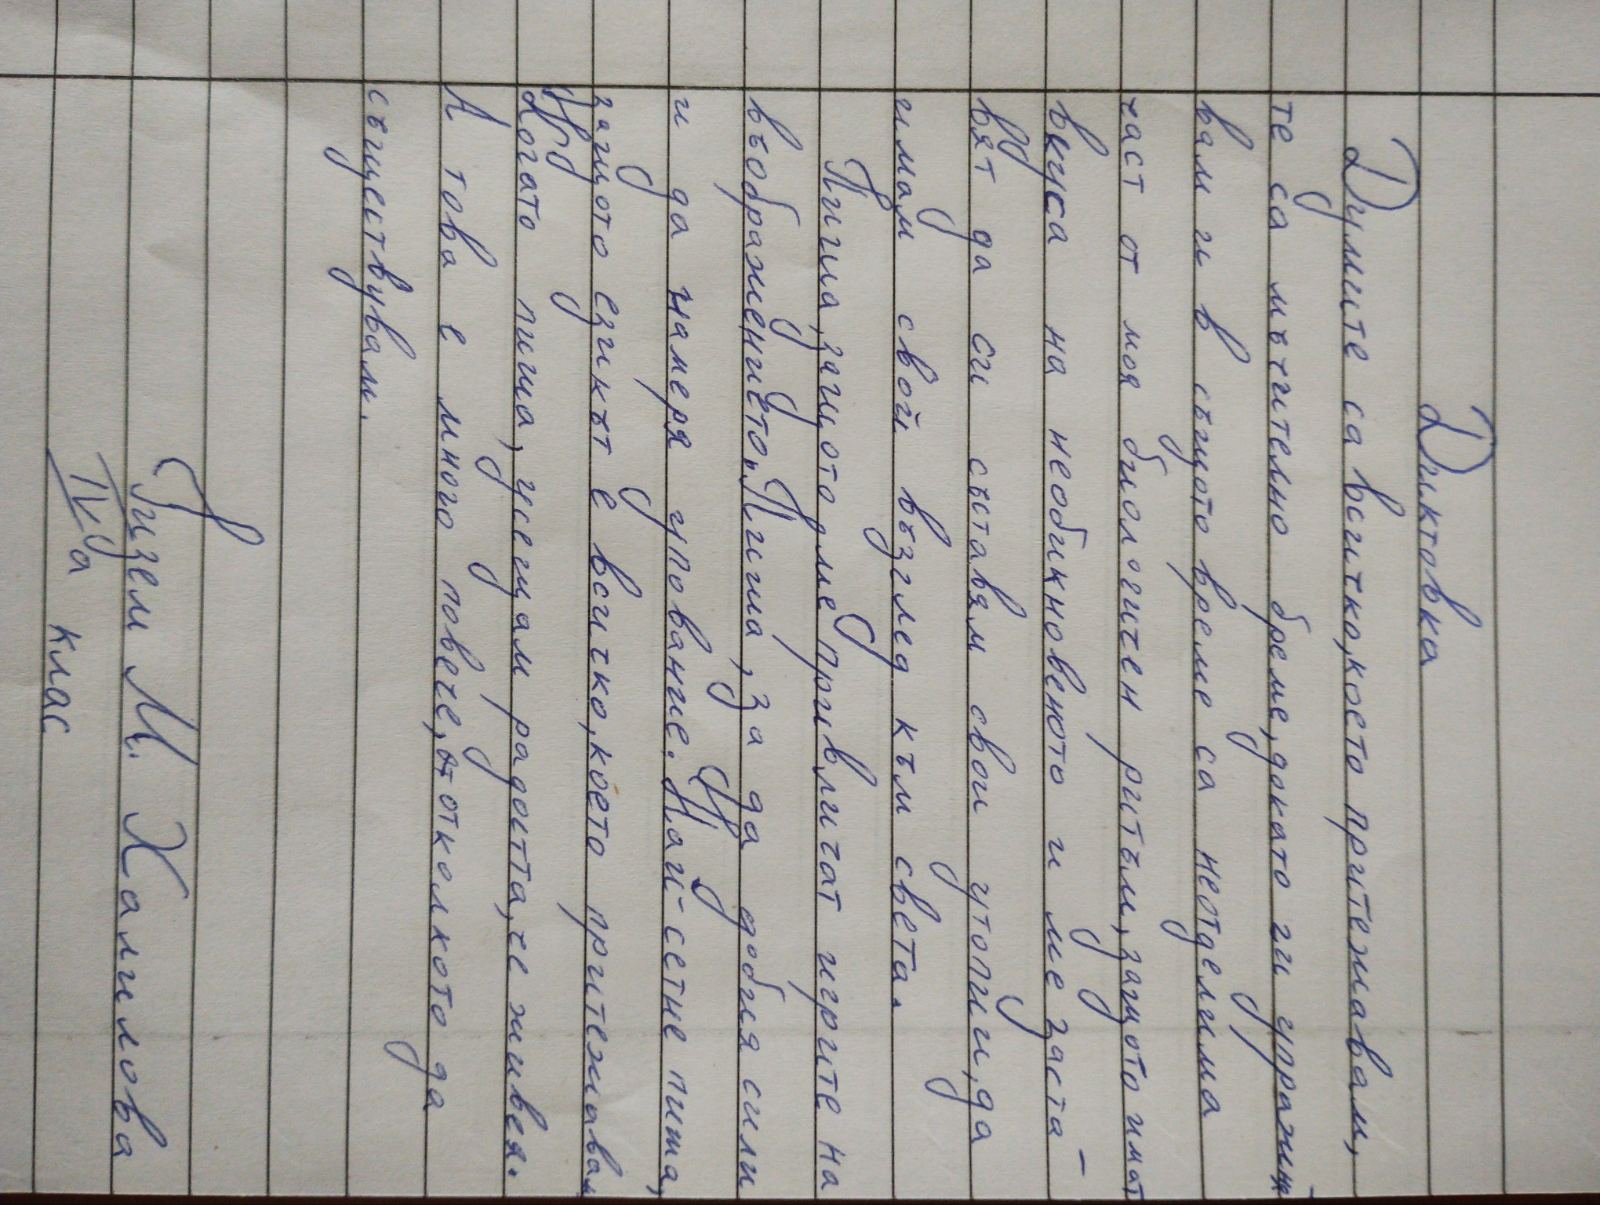 Диктовка
Думите са всичко, което притежавам,
те са мъчително бреме, докато ги упражня-
вам и в същото време са неотделима
част от моя биологичен ритъм, защото имат
вкуса на необикновеното и ме заста-
вят да си съставям свои утопии, да
имам свой възглед към света.
Пиша, защото ме привличат игрите на
въображението. Пиша, за да добия сили
и да намеря упование. Най-сетне пиша,
защото езикът е всичко, което притежавам.
Когато пиша, усещам радостта, че живея.
А това е много повече, отколкото да
съществувам.
Гизем М. Халилова
IV а клас